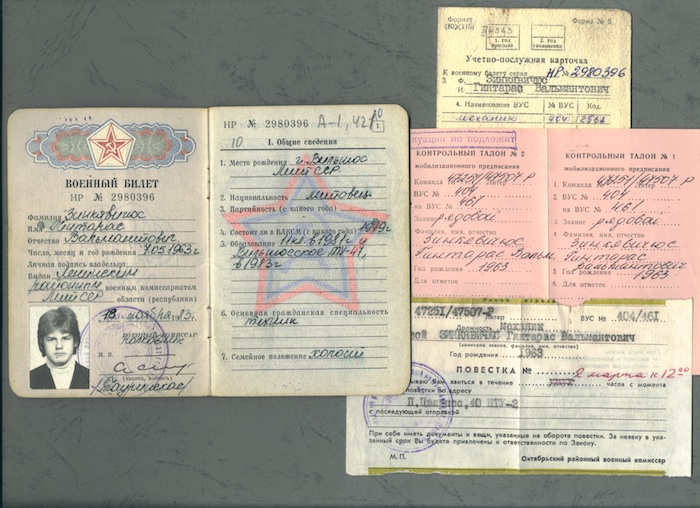 ВОЕННЫЙ БИЛЕТ
НР № 2980396
Фамилия Зинкявичюс
Имя Гинтарас
Отчество Вальмантович
Число, месяц и год рождения 7.05.1963 г
Личная подпись владельца
Выдан Ленинским
районным военным комиссариатом
Лит ССР области (республики)
18 ноября 83 г.
Военный комиссар
полковник
М. П.
(звание, подпись)
НР № 2980396 А-1, 421
10 I. Общие сведения
1. Место рождения г. Вильнюс
Лит ССР
2. Национальность литовец
3. Партийность (с какого года)
4. Состоит ли в ВЛКСМ (с какого года) 1979г
5. Образование 11 кл. в 1981г и
Вильнюсское ТУ-41,
в 1983г
6. Основная гражданская специальность
техник
7. Семейное положение холост
Формат
(80×115)
Форма № 6
1. год
призыва
2. год
увольнения
Учетно-послужная карточка
К военному билету серии НР № 2980396
3. Ф. Зинкявичюс
И. Гинтарас Вальмантович
4. Наименование ВУС № ВУС Код.
механик 404
подлежит
КОНТРОЛЬНЫЙ ТАЛОН № 2
мобилизационного предписания
Команда 47251/47507-Р Литер
ВУС № 404
на ВУС № 461
3. Звание рядовой
Фамилия, имя, отчество
Зинкевичюс
Гинтарас Вальм.
Год рождения 1963
Для отметок
КОНТРОЛЬНЫЙ ТАЛОН № 1
мобилизационного предписания
1. Команда 47251/47507-Р Литер
2. ВУС № 404
на ВУС № 461
3. Звание рядовой
4. Фамилия, имя, отчество
Зинкевичюс
Гинтарас
Вальмантович
5. Год рождения 1963
6. Для отметок
47251/47507-Р Литер ВУС № 404/461
Должность Механик
ЗИНКЯВИЧЮС Гинтарас Вальмантович
(фамилия, имя, отчество)
Год рождения 1963
ПОВЕСТКА № 2 марта к 12 00
Вам явиться в течение часов с момента
повестки по адресу
40 ПТУ-2
с последующей отправкой
При себе иметь документы и вещи, указанные на обороте повестки. За неявку в ука-
занный срок Вы будете привлечены к ответственности по Закону.
М. П. Октябрьский районный военный комиссар